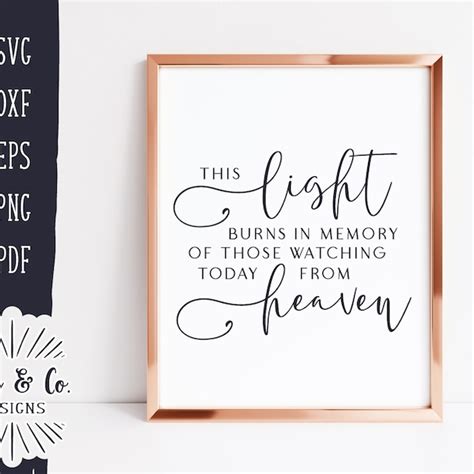 SVG
DXF
EPS
PNG
PDF
& Co.
SIGNS
THIS light
BURNS IN MEMORY
OF THOSE WATCHING
TODAY FROM
heaven